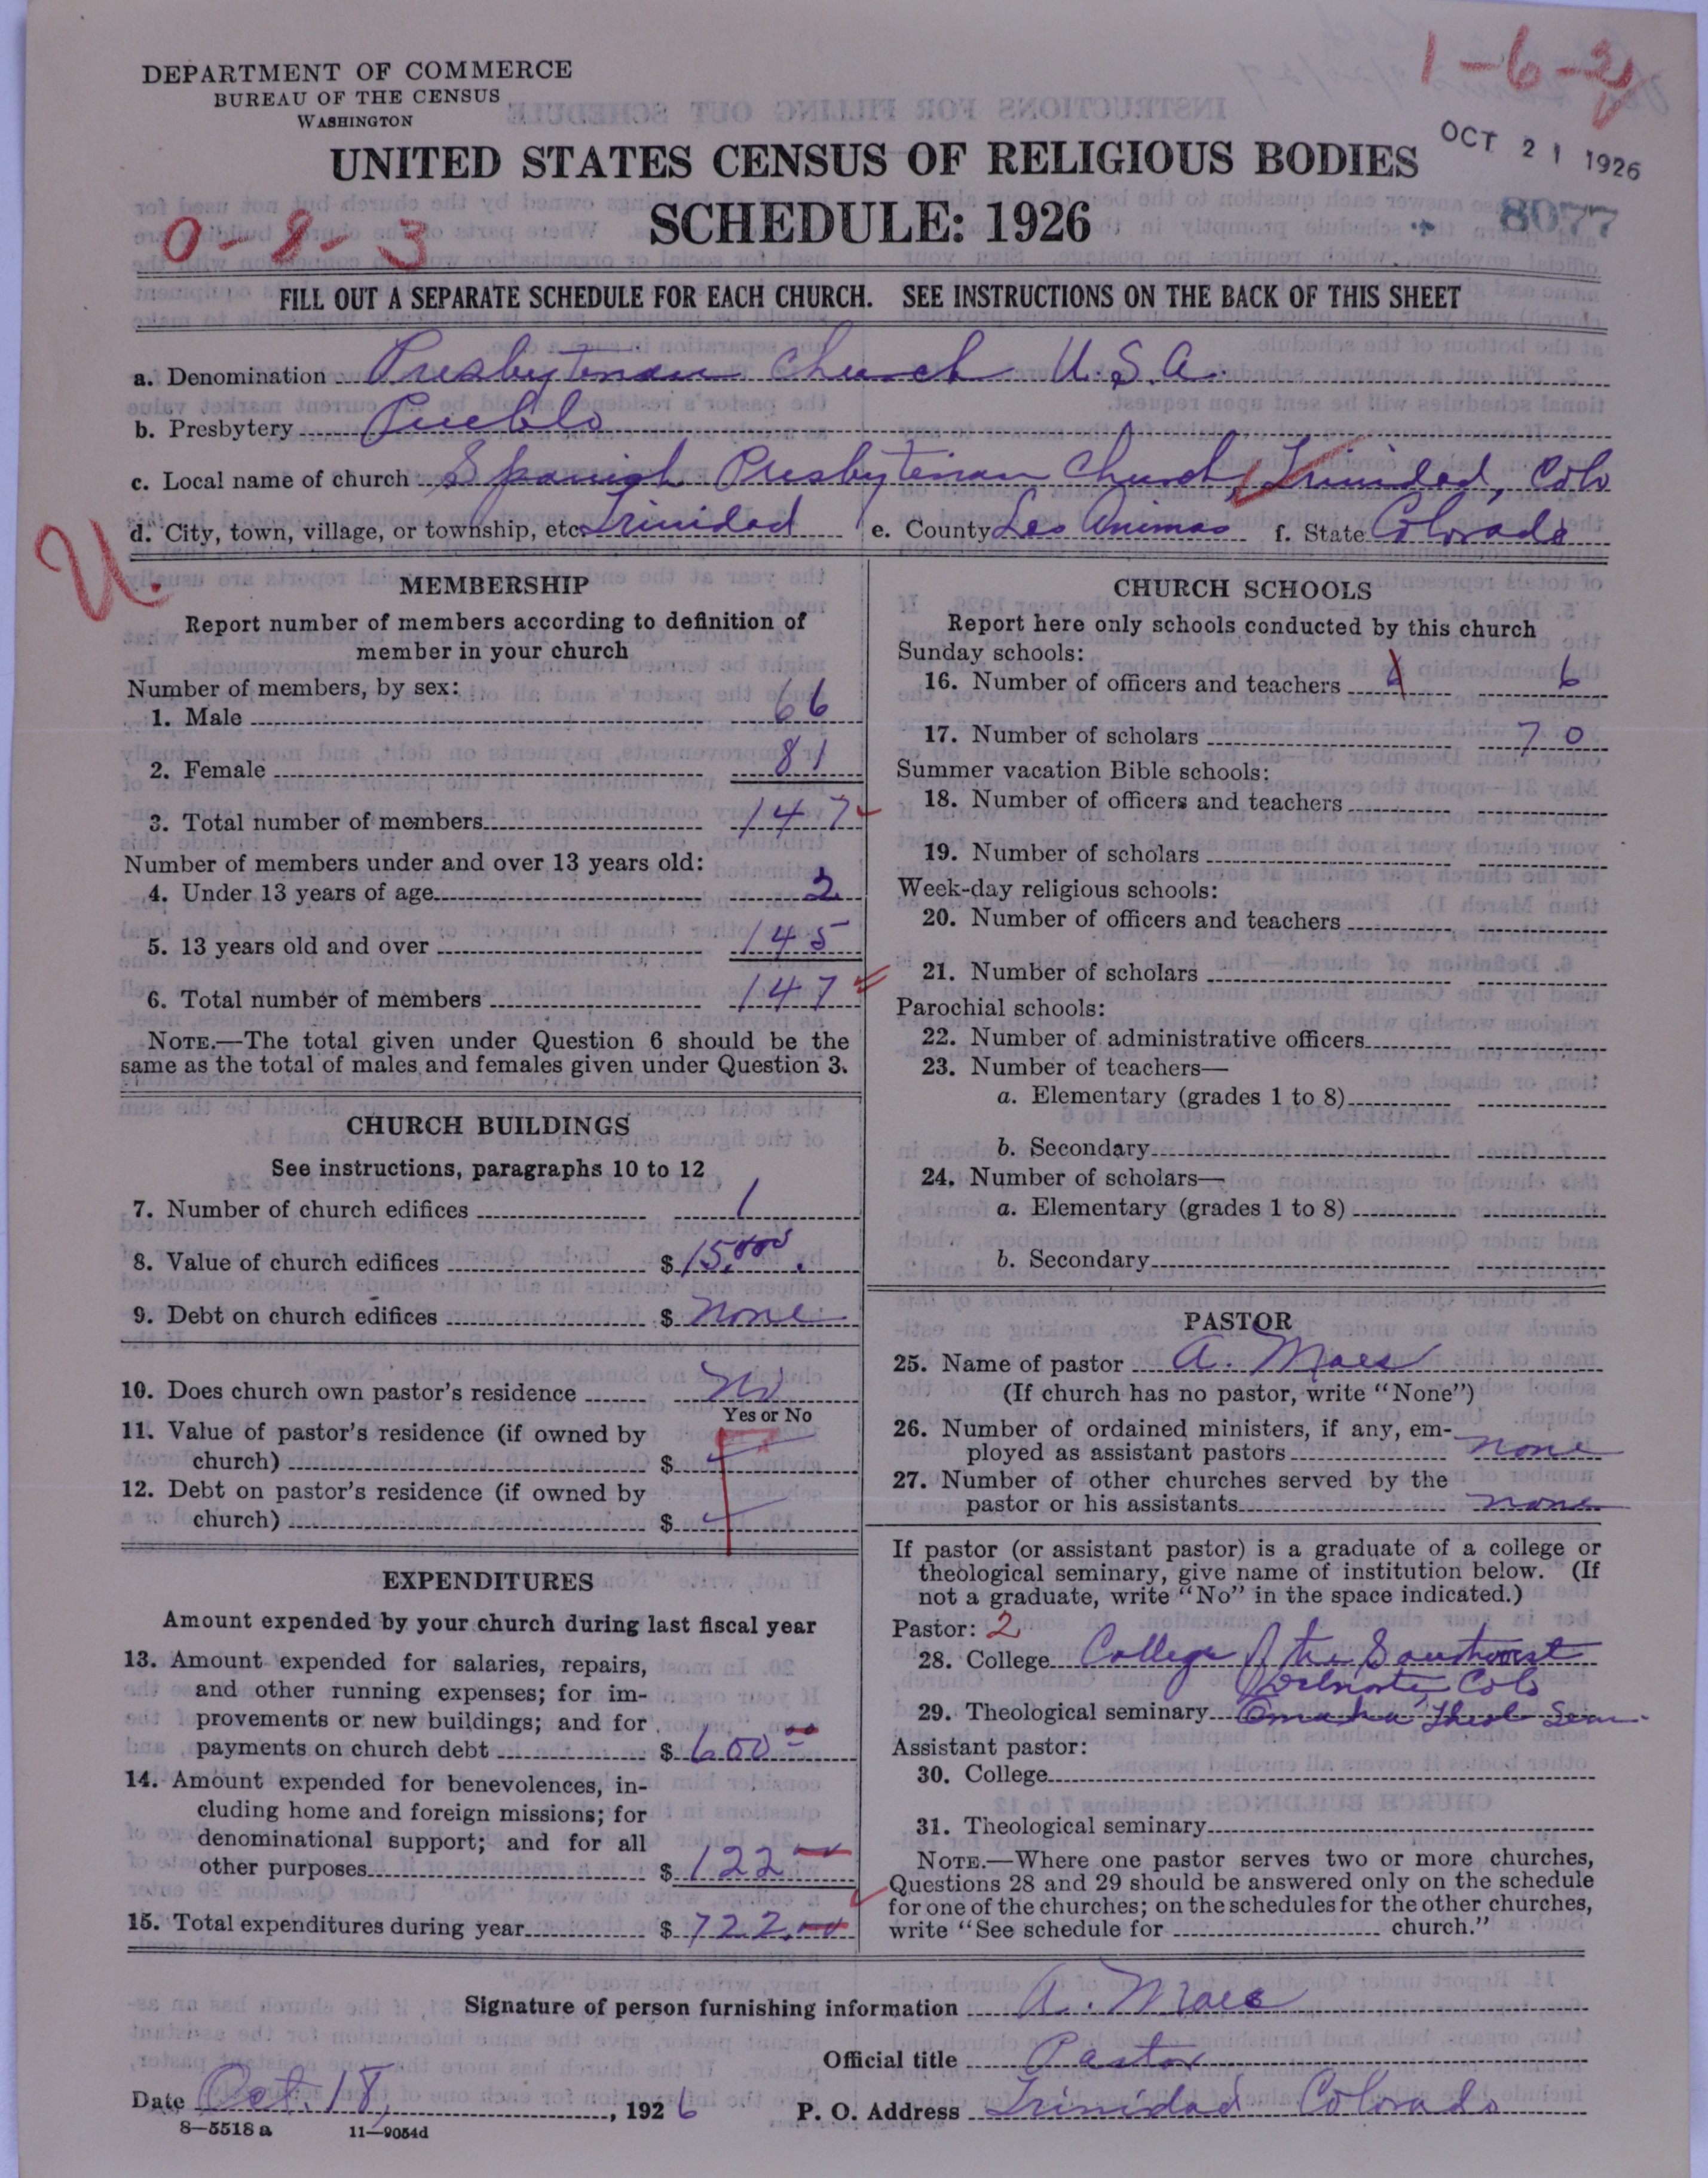 DEPARTMENT OF COMMERCE
BUREAU OF THE CENSUS
WASHINGTON
1-6-2
OCT 21 1926
UNITED STATES CENSUS OF RELIGIOUS BODIES
SCHEDULE: 1926
8077
0-8-3
FILL OUT A SEPARATE SCHEDULE FOR EACH CHURCH. SEE INSTRUCTIONS ON THE BACK OF THIS SHEET
a. Denomination Presbyterian Church U.S.A.
b. Presbytery Pueblo
c. Local name of church Spanish Presbyterian Church, Trinidad, Colo
d. City, town, village, or township, etc. Trinidad e. County Las Animas f. State Colorado
U.
MEMBERSHIP
Report number of members according to definition of
member in your church
Number of members, by sex:
1. Male 66
2. Female 81
3. Total number of members 147
Number of members under and over 13 years old:
4. Under 13 years of age 2
5. 13 years old and over 145
6. Total number of members 147
NOTE.—The total given under Question 6 should be the
same as the total of males and females given under Question 3.
CHURCH BUILDINGS
See instructions, paragraphs 10 to 12
7. Number of church edifices 1
8. Value of church edifices $ 15,000.
9. Debt on church edifices $ none
10. Does church own pastor's residence No
Yes or No
11. Value of pastor's residence (if owned by
church) $
12. Debt on pastor's residence (if owned by
church) $
EXPENDITURES
Amount expended by your church during last fiscal year
13. Amount expended for salaries, repairs,
and other running expenses; for im-
provements or new buildings; and for
payments on church debt $ 600 00
14. Amount expended for benevolences, in-
cluding home and foreign missions; for
denominational support; and for all
other purposes $ 122
15. Total expenditures during year $ 722.00
CHURCH SCHOOLS
Report here only schools conducted by this church
Sunday schools:
16. Number of officers and teachers 6
17. Number of scholars 70
Summer vacation Bible schools:
18. Number of officers and teachers
19. Number of scholars
Week-day religious schools:
20. Number of officers and teachers
21. Number of scholars
Parochial schools:
22. Number of administrative officers
23. Number of teachers—
a. Elementary (grades 1 to 8)
b. Secondary
24. Number of scholars—
a. Elementary (grades 1 to 8)
b. Secondary
PASTOR
25. Name of pastor A. Maes
(If church has no pastor, write "None")
26. Number of ordained ministers, if any, em-
ployed as assistant pastors none
27. Number of other churches served by the
pastor or his assistants none
If pastor (or assistant pastor) is a graduate of a college or
theological seminary, give name of institution below. (If
not a graduate, write "No" in the space indicated.)
Pastor: 2
28. College College of the Southwest
Delnorte, Colo
29. Theological seminary Omaha Theol Sem.
Assistant pastor:
30. College
31. Theological seminary
NOTE.—Where one pastor serves two or more churches,
Questions 28 and 29 should be answered only on the schedule
for one of the churches; on the schedules for the other churches,
write "See schedule for church."
Signature of person furnishing information A. Maes
Official title Pastor
Date Oct. 18, 1926 P. O. Address Trinidad Colorado
8—5518 a 11—9054d